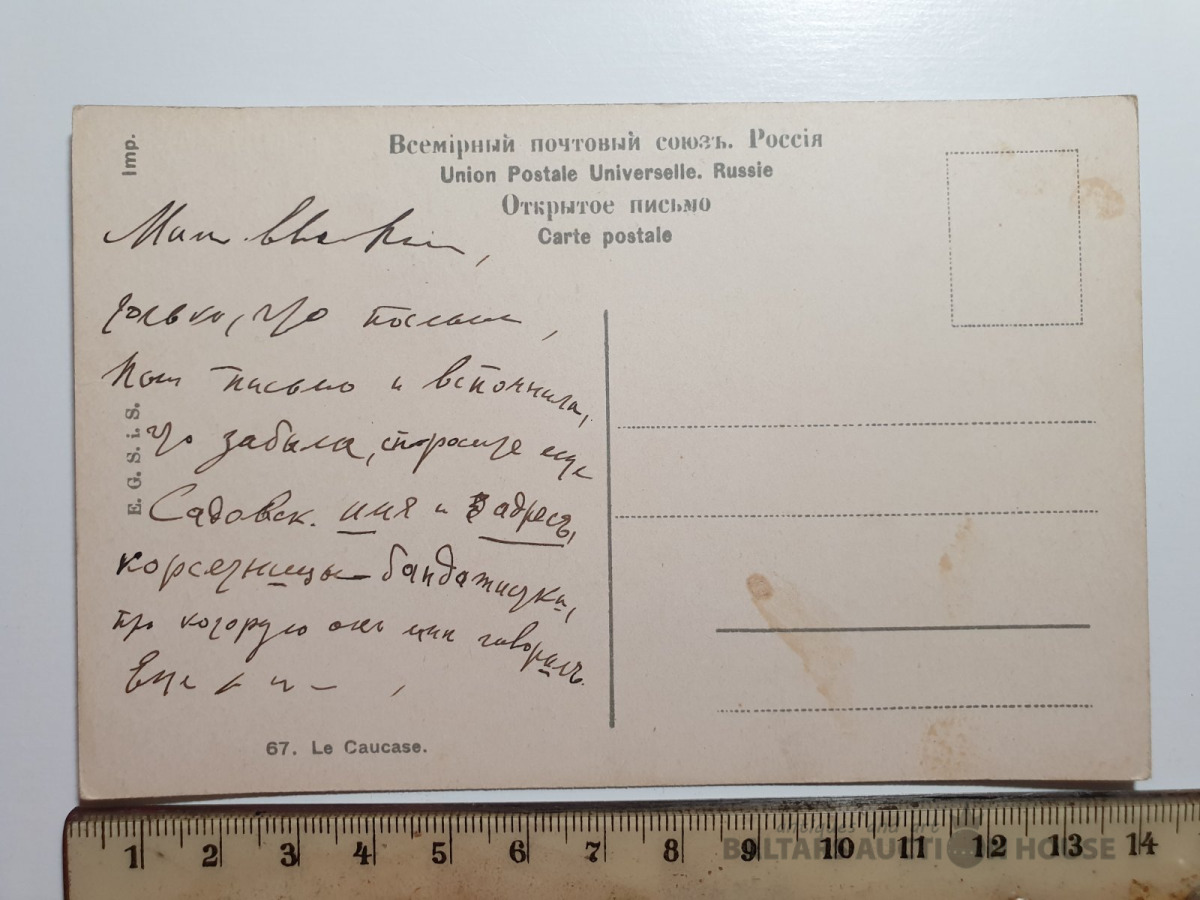 Imp.
Всемірный почтовый союзъ. Россія
Union Postale Universelle. Russie
Открытое письмо
Carte postale
только, что послала,
письмо и вспомнила,
что забыла, спросите еще
E. G. S. i. S.
Садовск. имя и адресъ,
корсетницы-бандажистки,
про которую онъ мнѣ говорилъ.
67. Le Caucase.
1 2 3 4 5 6 7 8 9 10 11 12 13 14
antiques and art
BALTARO AUCTION HOUSE